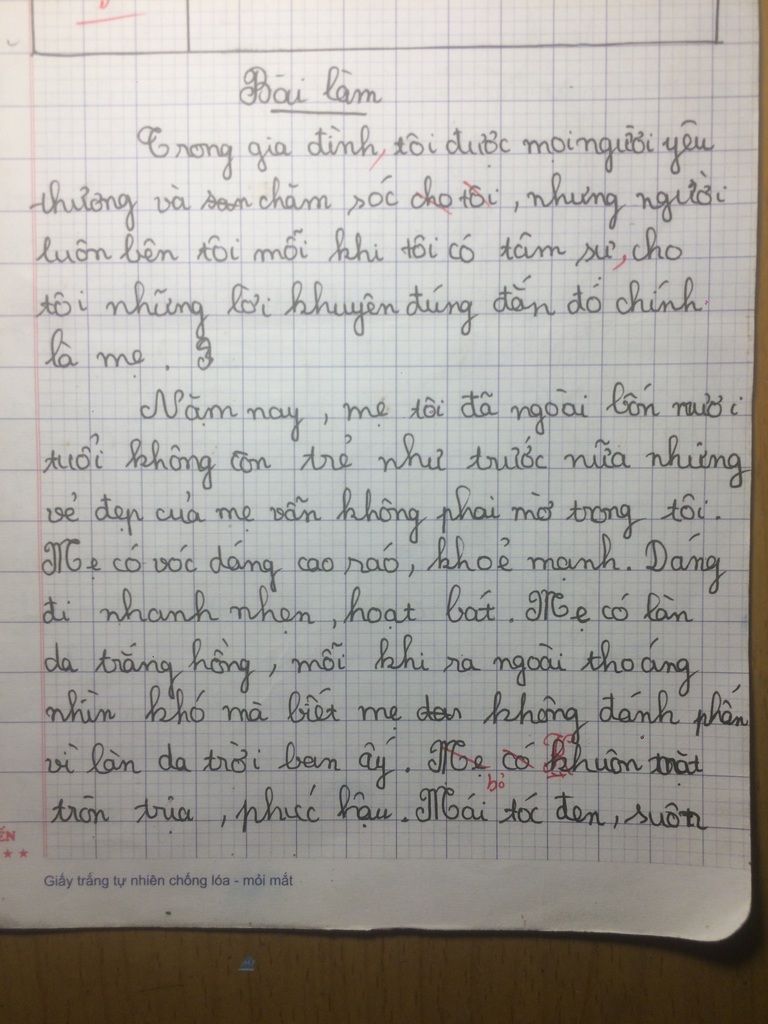 Bài làm
Trong gia đình, tôi được mọi người yêu
thương và chăm sóc cho tôi, nhưng người
luôn bên tôi mỗi khi tôi có tâm sự, cho
tôi những lời khuyên đúng đắn đó chính
là mẹ.
Năm nay, mẹ tôi đã ngoài bốn mươi
tuổi không còn trẻ như trước nữa nhưng
vẻ đẹp của mẹ vẫn không phai mờ trong tôi.
Mẹ có vóc dáng cao ráo, khoẻ mạnh. Dáng
đi nhanh nhẹn, hoạt bát. Mẹ có làn
da trắng hồng, mỗi khi ra ngoài thoáng
nhìn khó mà biết mẹ không đánh phấn
vì làn da trời ban ấy. Mẹ có khuôn mặt
bỏ
tròn trịa, phúc hậu. Mái tóc đen, suôn
ẾN
Giấy trắng tự nhiên chống lóa - mỏi mắt